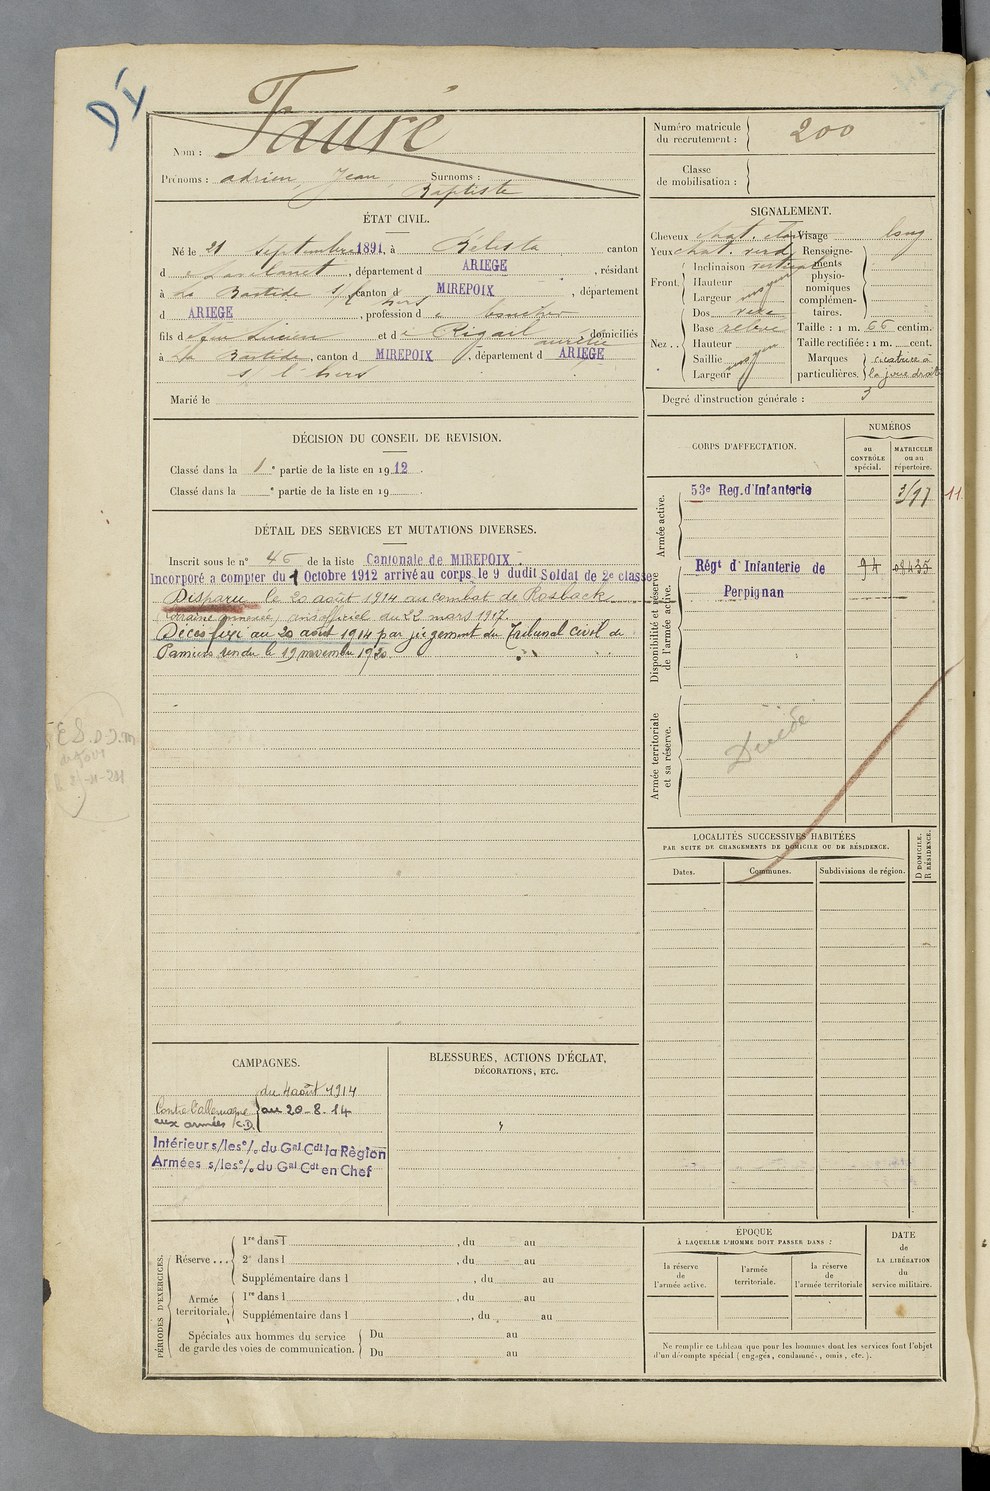 DÏ
Nom : Fauré
Prénoms : adrien Jean Surnoms :
Baptiste
ÉTAT CIVIL.
Né le 21 septembre 1891, à Bélesta canton
d e Lavelanet, département d ARIEGE, résidant
à La Bastide s/l canton d MIREPOIX, département
hers
d ARIEGE, profession d e
fils d e feu Lucien et d e Rigail domiciliés
aurélie
à La Bastide, canton d MIREPOIX, département d ARIEGE
s/ l'hers
Marié le
DÉCISION DU CONSEIL DE REVISION.
Classé dans la 1e partie de la liste en 1912.
Classé dans la e partie de la liste en 19 .
DÉTAIL DES SERVICES ET MUTATIONS DIVERSES.
Inscrit sous le n° 46 de la liste Cantonale de MIREPOIX.
Incorporé a compter du 1 Octobre 1912 arrivé au corps le 9 dudit Soldat de 2e classe
Disparu le 20 août 1914 au combat de Rosback
(Lorraine annexée) avis officiel du 22 mars 1917.
Décès fixé au 20 août 1914 par jugement du Tribunal civil de
Pamiers rendu le 19 novembre 1920.
CAMPAGNES.
du 4 août 1914
Contre l'allemagne au 20-8-14
aux armées (C.D.)
Intérieur s/les°/. du Gal Cdt la Règion
Armées s/les°/. du Gal Cdt en Chef
BLESSURES, ACTIONS D'ÉCLAT,
DÉCORATIONS, ETC.
PÉRIODES D'EXERCICES.
Réserve ...
1re dans l , du au
2e dans l , du au
Supplémentaire dans l , du au
Armée territoriale.
1re dans l , du au
Supplémentaire dans l , du au
Spéciales aux hommes du service
de garde des voies de communication.
Du au
Du au
Numéro matricule
du recrutement : 200
Classe
de mobilisation :
SIGNALEMENT.
Cheveux chat. clair Visage long
Yeux chat. verd
Front Inclinaison verticale
Hauteur
Largeur moyen
Nez .. Dos
Base relevé
Hauteur
Saillie moyen
Largeur
Renseigne-
ments
physio-
nomiques
complémen-
taires.
Taille : 1 m. 66 centim.
Taille rectifiée : 1 m. cent.
Marques cicatrice à
particulières. la joue droite
Degré d'instruction générale : 3
CORPS D'AFFECTATION.
NUMÉROS
au
CONTRÔLE
spécial.
MATRICULE
ou au
répertoire.
Armée active.
53e Reg. d'Infanterie
11
Disponibilité et réserve
de l'armée active.
Régt d'Infanterie de 94
Perpignan
Armée territoriale
et sa réserve.
Décédé
LOCALITÉS SUCCESSIVES HABITÉES
PAR SUITE DE CHANGEMENTS DE DOMICILE OU DE RÉSIDENCE.
Dates. Communes. Subdivisions de région.
D DOMICILE.
R RÉSIDENCE.
ÉPOQUE
À LAQUELLE L'HOMME DOIT PASSER DANS :
la réserve
de
l'armée active.
l'armée
territoriale.
la réserve
de
l'armée territoriale
DATE
de
LA LIBÉRATION
du
service militaire.
Ne remplir ce tableau que pour les hommes dont les services font l'objet
d'un décompte spécial (engagés, condamnés, omis, etc.).